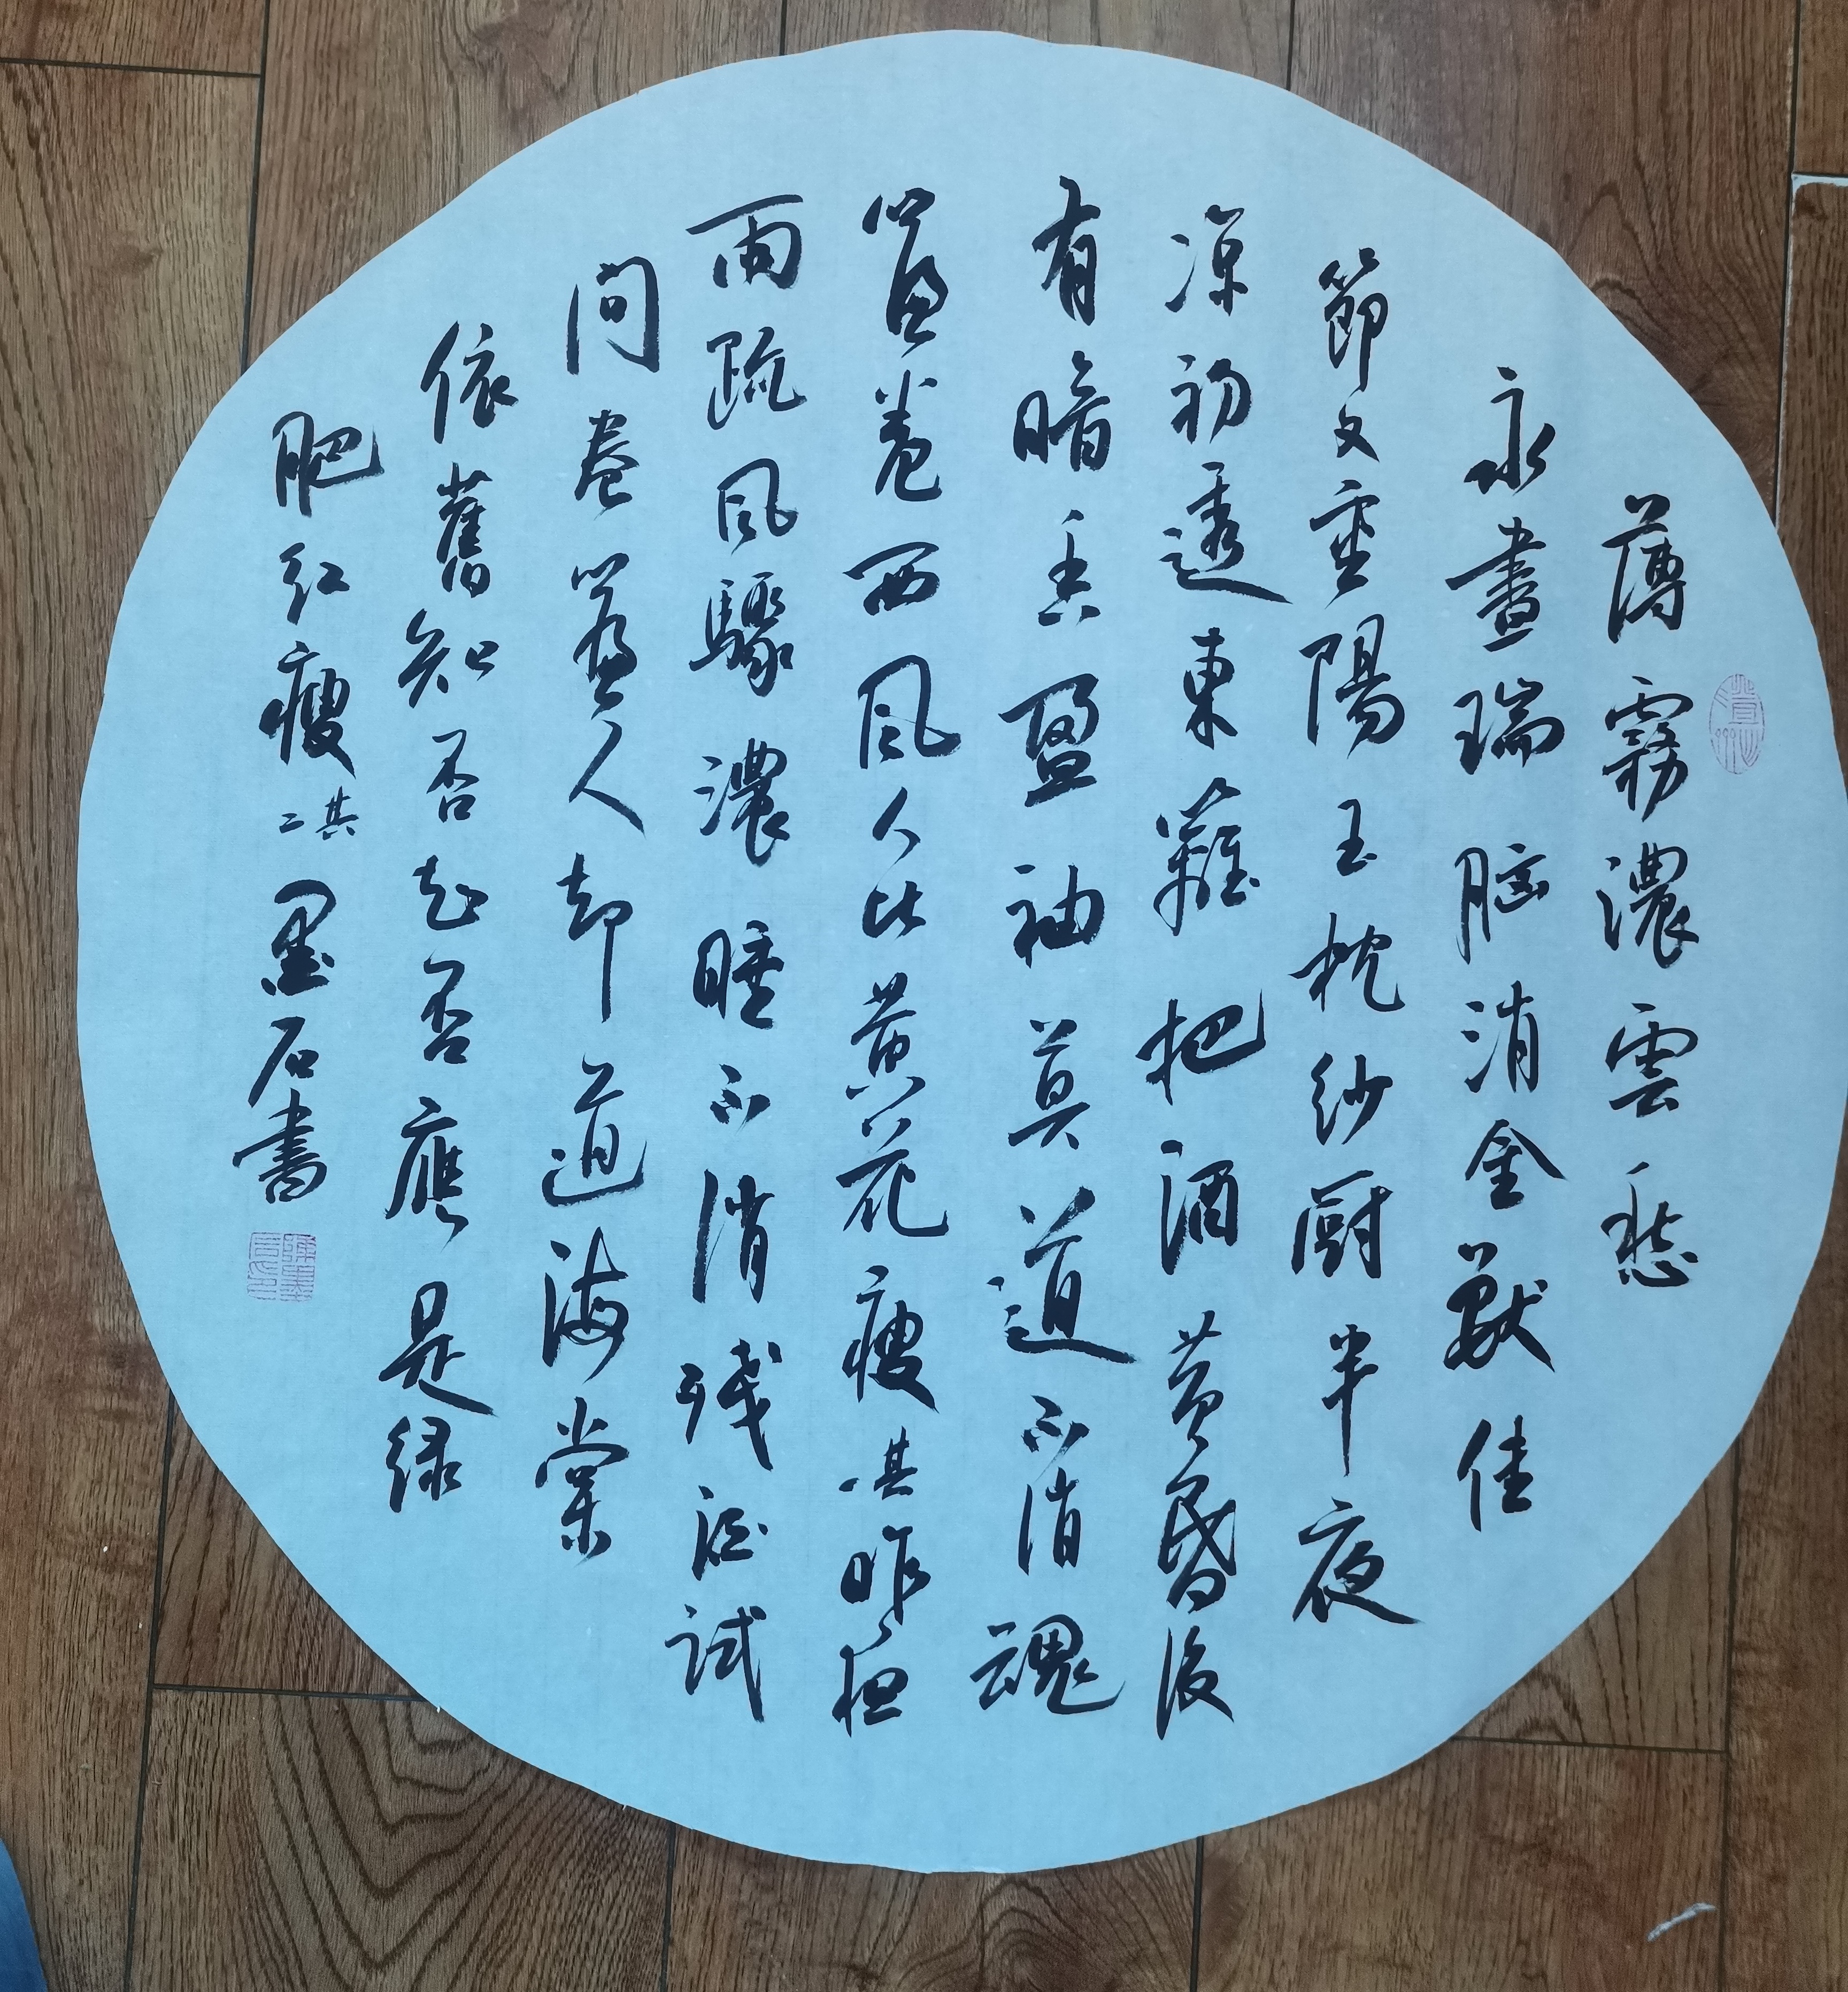 薄霧濃雲愁
永晝瑞脑消金獸佳
節又重陽玉枕纱厨半夜
凉初透東籬把酒黄昏後
有暗香盈袖莫道不消魂
簾卷西风人比黄花瘦其一昨夜
雨疏风驟濃睡不消残酒试
问卷簾人却道海棠
依舊知否知否應是绿
肥红瘦其二墨石書